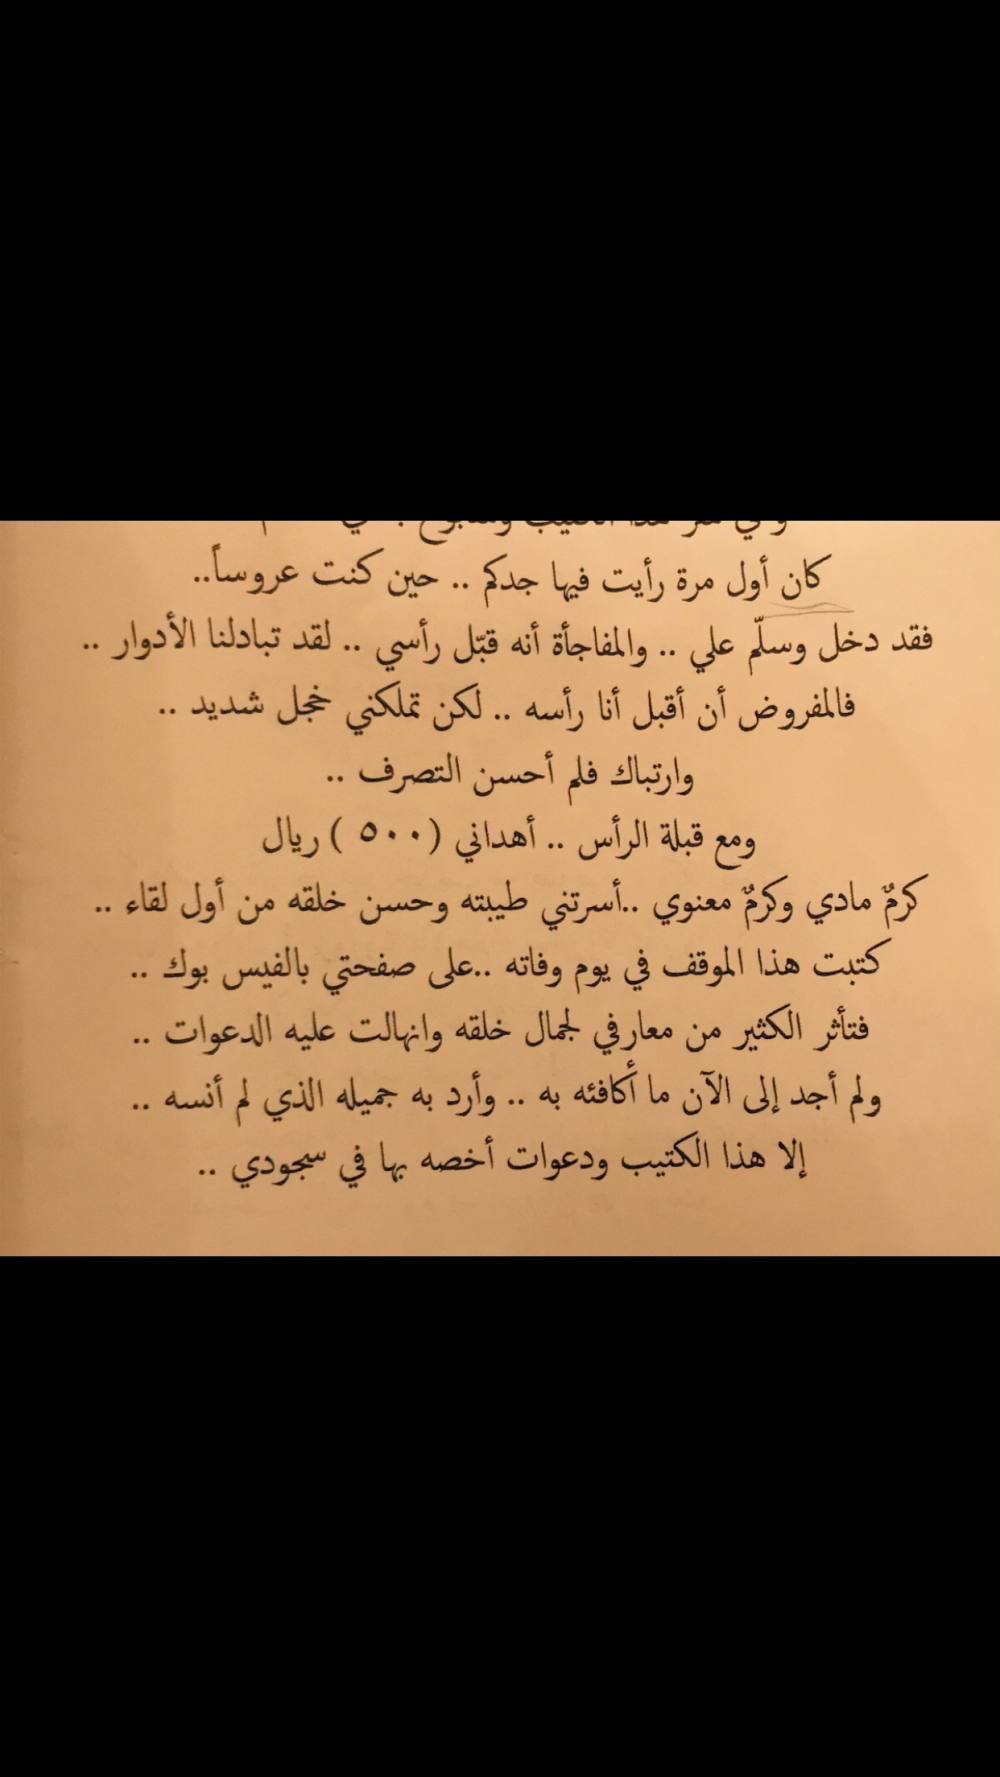 كان أول مرة رأيت فيها جدكم .. حين كنت عروساً..
فقد دخل وسلّم علي .. والمفاجأة أنه قبّل رأسي .. لقد تبادلنا الأدوار ..
فالمفروض أن أقبل أنا رأسه .. لكن تملكني خجل شديد ..
وارتباك فلم أحسن التصرف ..
ومع قبلة الرأس .. أهداني (٥٠٠ ) ريال
كرمٌ مادي وكرمٌ معنوي ..أسرتني طيبته وحسن خلقه من أول لقاء ..
كتبت هذا الموقف في يوم وفاته ..على صفحتي بالفيس بوك ..
فتأثر الكثير من معارفي لجمال خلقه وانهالت عليه الدعوات ..
ولم أجد إلى الآن ما أكافئه به .. وأرد به جميله الذي لم أنسه ..
إلا هذا الكتيب ودعوات أخصه بها في سجودي ..